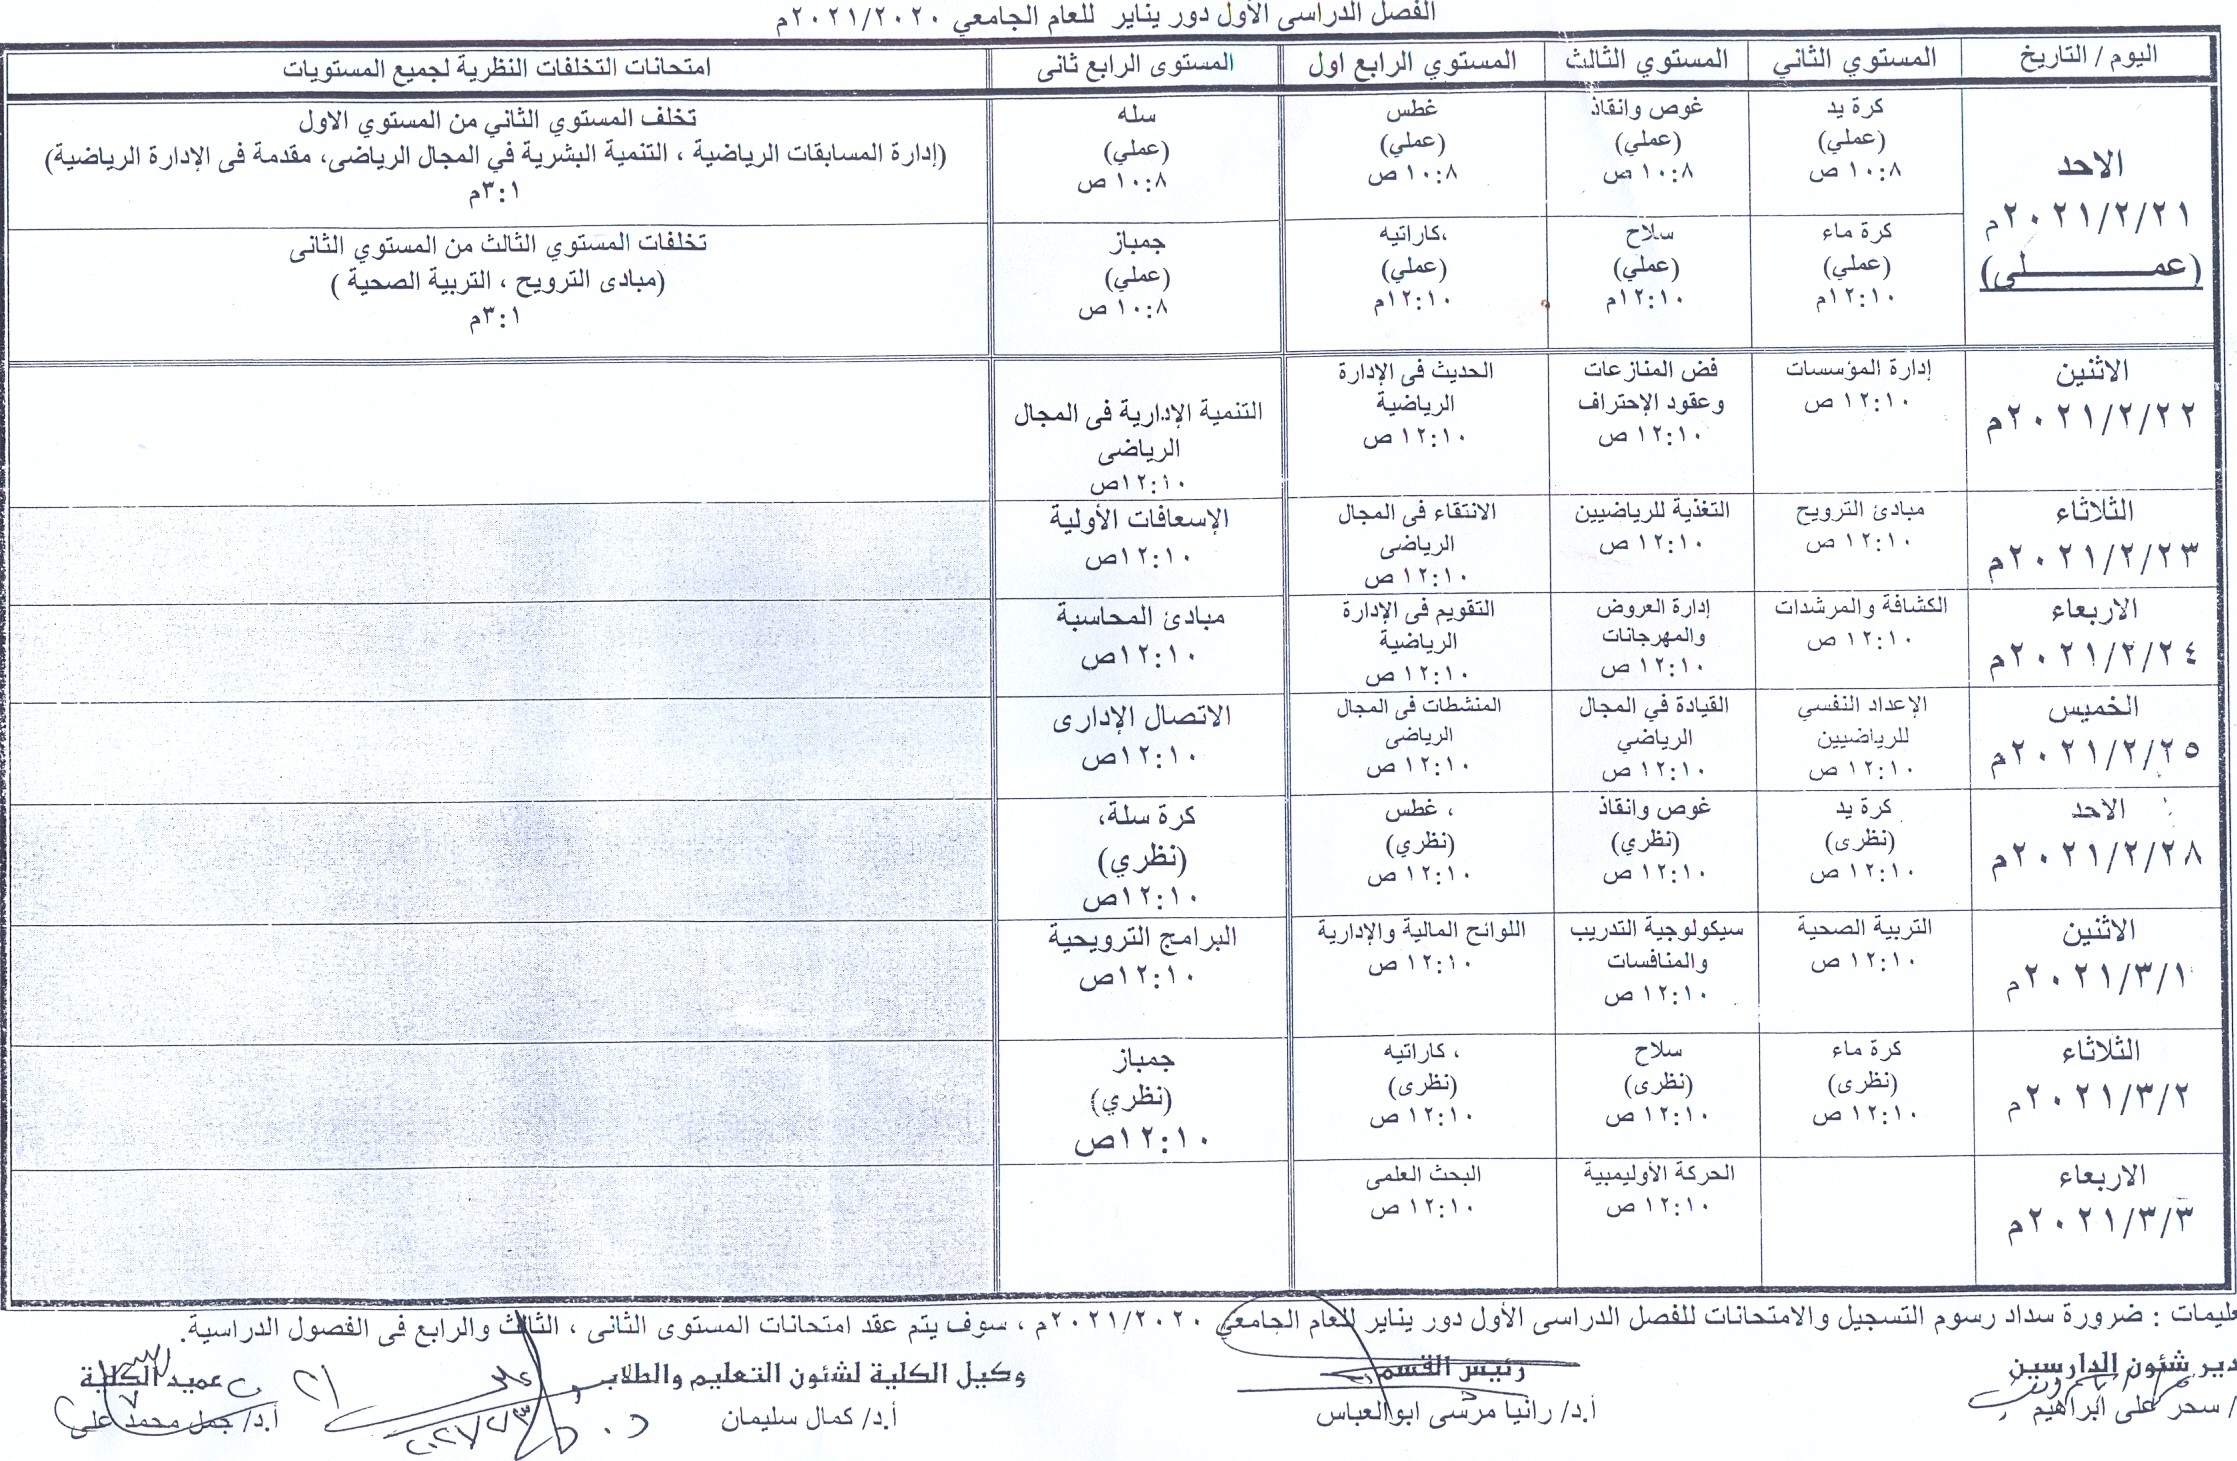 الفصل الدراسى الأول دور يناير للعام الجامعي ٢٠٢١/٢٠٢٠م
اليوم / التاريخ
المستوي الثاني
المستوي الثالث
المستوي الرابع اول
المستوى الرابع ثانى
امتحانات التخلفات النظرية لجميع المستويات
الاحد
٢٠٢١/٢/٢١م
(عمـــــــلى)
كرة يد
(عملي)
١٠:٨ ص
غوص وانقاذ
(عملي)
١٠:٨ ص
غطس
(عملي)
١٠:٨ ص
سله
(عملي)
١٠:٨ ص
تخلف المستوي الثاني من المستوي الاول
(إدارة المسابقات الرياضية ، التنمية البشرية في المجال الرياضى، مقدمة فى الإدارة الرياضية)
٣:١م
كرة ماء
(عملي)
١٢:١٠م
سلاح
(عملي)
١٢:١٠م
،كاراتيه
(عملي)
١٢:١٠م
جمباز
(عملي)
١٠:٨ ص
تخلفات المستوي الثالث من المستوي الثانى
(مبادى الترويح ، التربية الصحية )
٣:١م
الاثنين
٢٠٢١/٢/٢٢م
إدارة المؤسسات
١٢:١٠ ص
فض المنازعات
وعقود الإحتراف
١٢:١٠ ص
الحديث فى الإدارة
الرياضية
١٢:١٠ ص
التنمية الإدارية فى المجال
الرياضى
١٢:١٠ص
الثلاثاء
٢٠٢١/٢/٢٣م
مبادئ الترويح
١٢:١٠ ص
التغذية للرياضيين
١٢:١٠ ص
الانتقاء فى المجال
الرياضى
١٢:١٠ ص
الإسعافات الأولية
١٢:١٠ص
الاربعاء
٢٠٢١/٢/٢٤م
الكشافة والمرشدات
١٢:١٠ ص
إدارة العروض
والمهرجانات
١٢:١٠ ص
التقويم فى الإدارة
الرياضية
١٢:١٠ ص
مبادئ المحاسبة
١٢:١٠ص
الخميس
٢٠٢١/٢/٢٥م
الإعداد النفسي
للرياضيين
١٢:١٠ ص
القيادة في المجال
الرياضي
١٢:١٠ ص
المنشطات فى المجال
الرياضى
١٢:١٠ ص
الاتصال الإدارى
١٢:١٠ص
الاحد
٢٠٢١/٢/٢٨م
كرة يد
(نظرى)
١٢:١٠ ص
غوص وانقاذ
(نظري)
١٢:١٠ ص
، غطس
(نظري)
١٢:١٠ ص
كرة سلة،
(نظري)
١٢:١٠ص
الاثنين
٢٠٢١/٣/١م
التربية الصحية
١٢:١٠ ص
سيكولوجية التدريب
والمنافسات
١٢:١٠ ص
اللوائح المالية والإدارية
١٢:١٠ ص
البرامج الترويحية
١٢:١٠ص
الثلاثاء
٢٠٢١/٣/٢م
كرة ماء
(نظرى)
١٢:١٠ ص
سلاح
(نظرى)
١٢:١٠ ص
، كاراتيه
(نظرى)
١٢:١٠ ص
جمباز
(نظري)
١٢:١٠ص
الاربعاء
٢٠٢١/٣/٣م
الحركة الأوليمبية
١٢:١٠ ص
البحث العلمى
١٢:١٠ ص
عليمات : ضرورة سداد رسوم التسجيل والامتحانات للفصل الدراسى الأول دور يناير للعام الجامعي ٢٠٢١/٢٠٢٠م ، سوف يتم عقد امتحانات المستوى الثانى ، الثالث والرابع فى الفصول الدراسية.
دير شئون الدارسين
رئيس القسم
وكيل الكلية لشئون التعليم والطلاب
عميد الكلية
/ سحر على ابراهيم
أ.د/ رانيا مرسى ابوالعباس
أ.د/ كمال سليمان
أ.د/ جمل محمد على